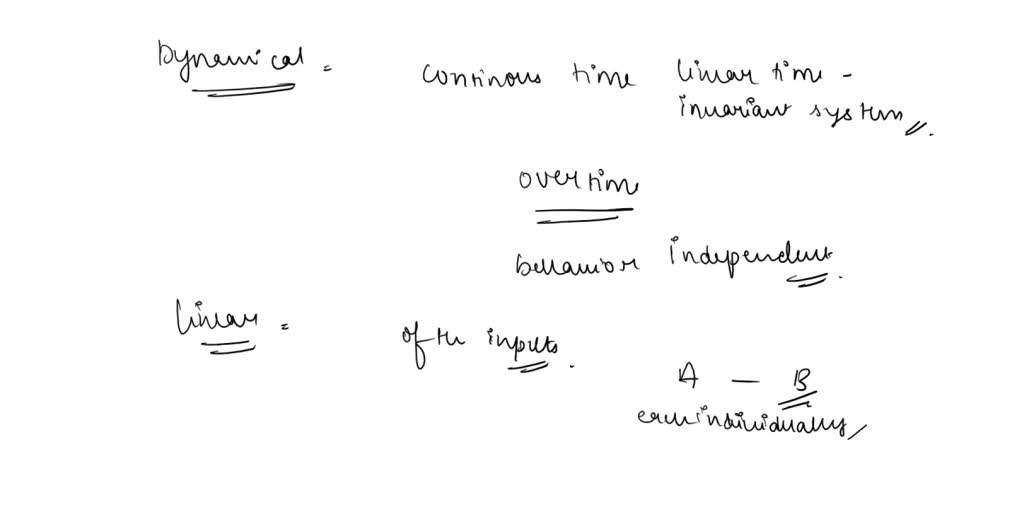 Dynamical = continous time linear time -
invariant system.
over time
behavior independent.
linear = of the inputs.
A — B
each individually,